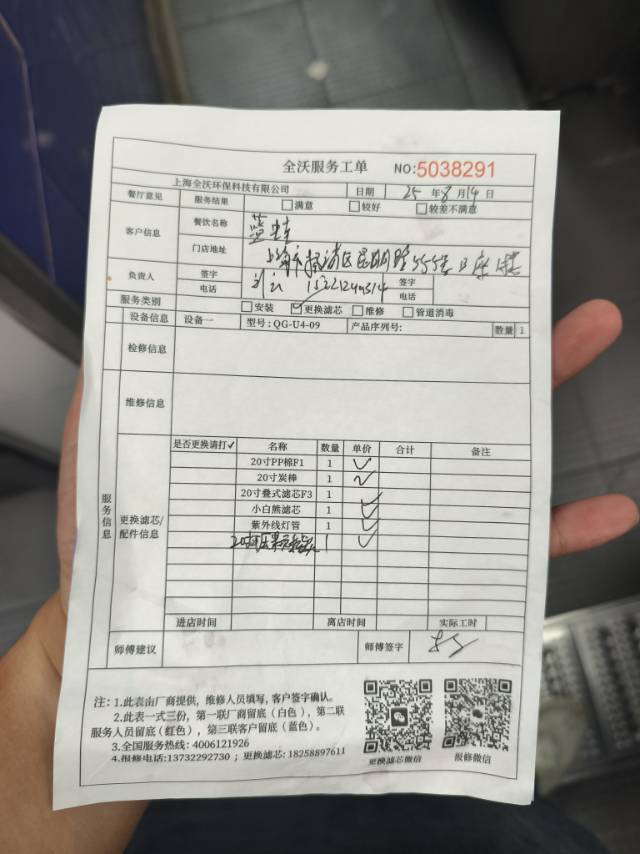 全沃服务工单 NO:5038291
上海全沃环保科技有限公司 日期 25 年 8 月 14 日
餐厅意见 服务结果 满意 较好 较差不满意
客户信息 餐饮名称 蓝蛙
门店地址 上海市杨浦区昆明路555号B座
负责人 签字 签字
电话 电话
服务类别 安装 ✓更换滤芯 维修 管道消毒
设备信息 设备一 型号: QG-U4-09 产品序列号: 数量 1
检修信息
维修信息
服务信息
更换滤芯/配件信息
是否更换请打✓ 名称 数量 单价 合计 备注
20寸PP棉F1 1 ✓
20寸炭棒 1 ✓
20寸叠式滤芯F3 1 ✓
小白熊滤芯 1 ✓
紫外线灯管 1 ✓
20寸 1 ✓
进店时间 离店时间 实际工时
师傅建议 师傅签字
注: 1.此表由厂商提供, 维修人员填写, 客户签字确认。
2.此表一式三份, 第一联厂商留底(白色), 第二联
服务人员留底(红色), 第三联客户留底(蓝色)。
3.全国服务热线: 4006121926
4.报修电话:13732292730 ; 更换滤芯: 18258897611
更换滤芯微信 报修微信